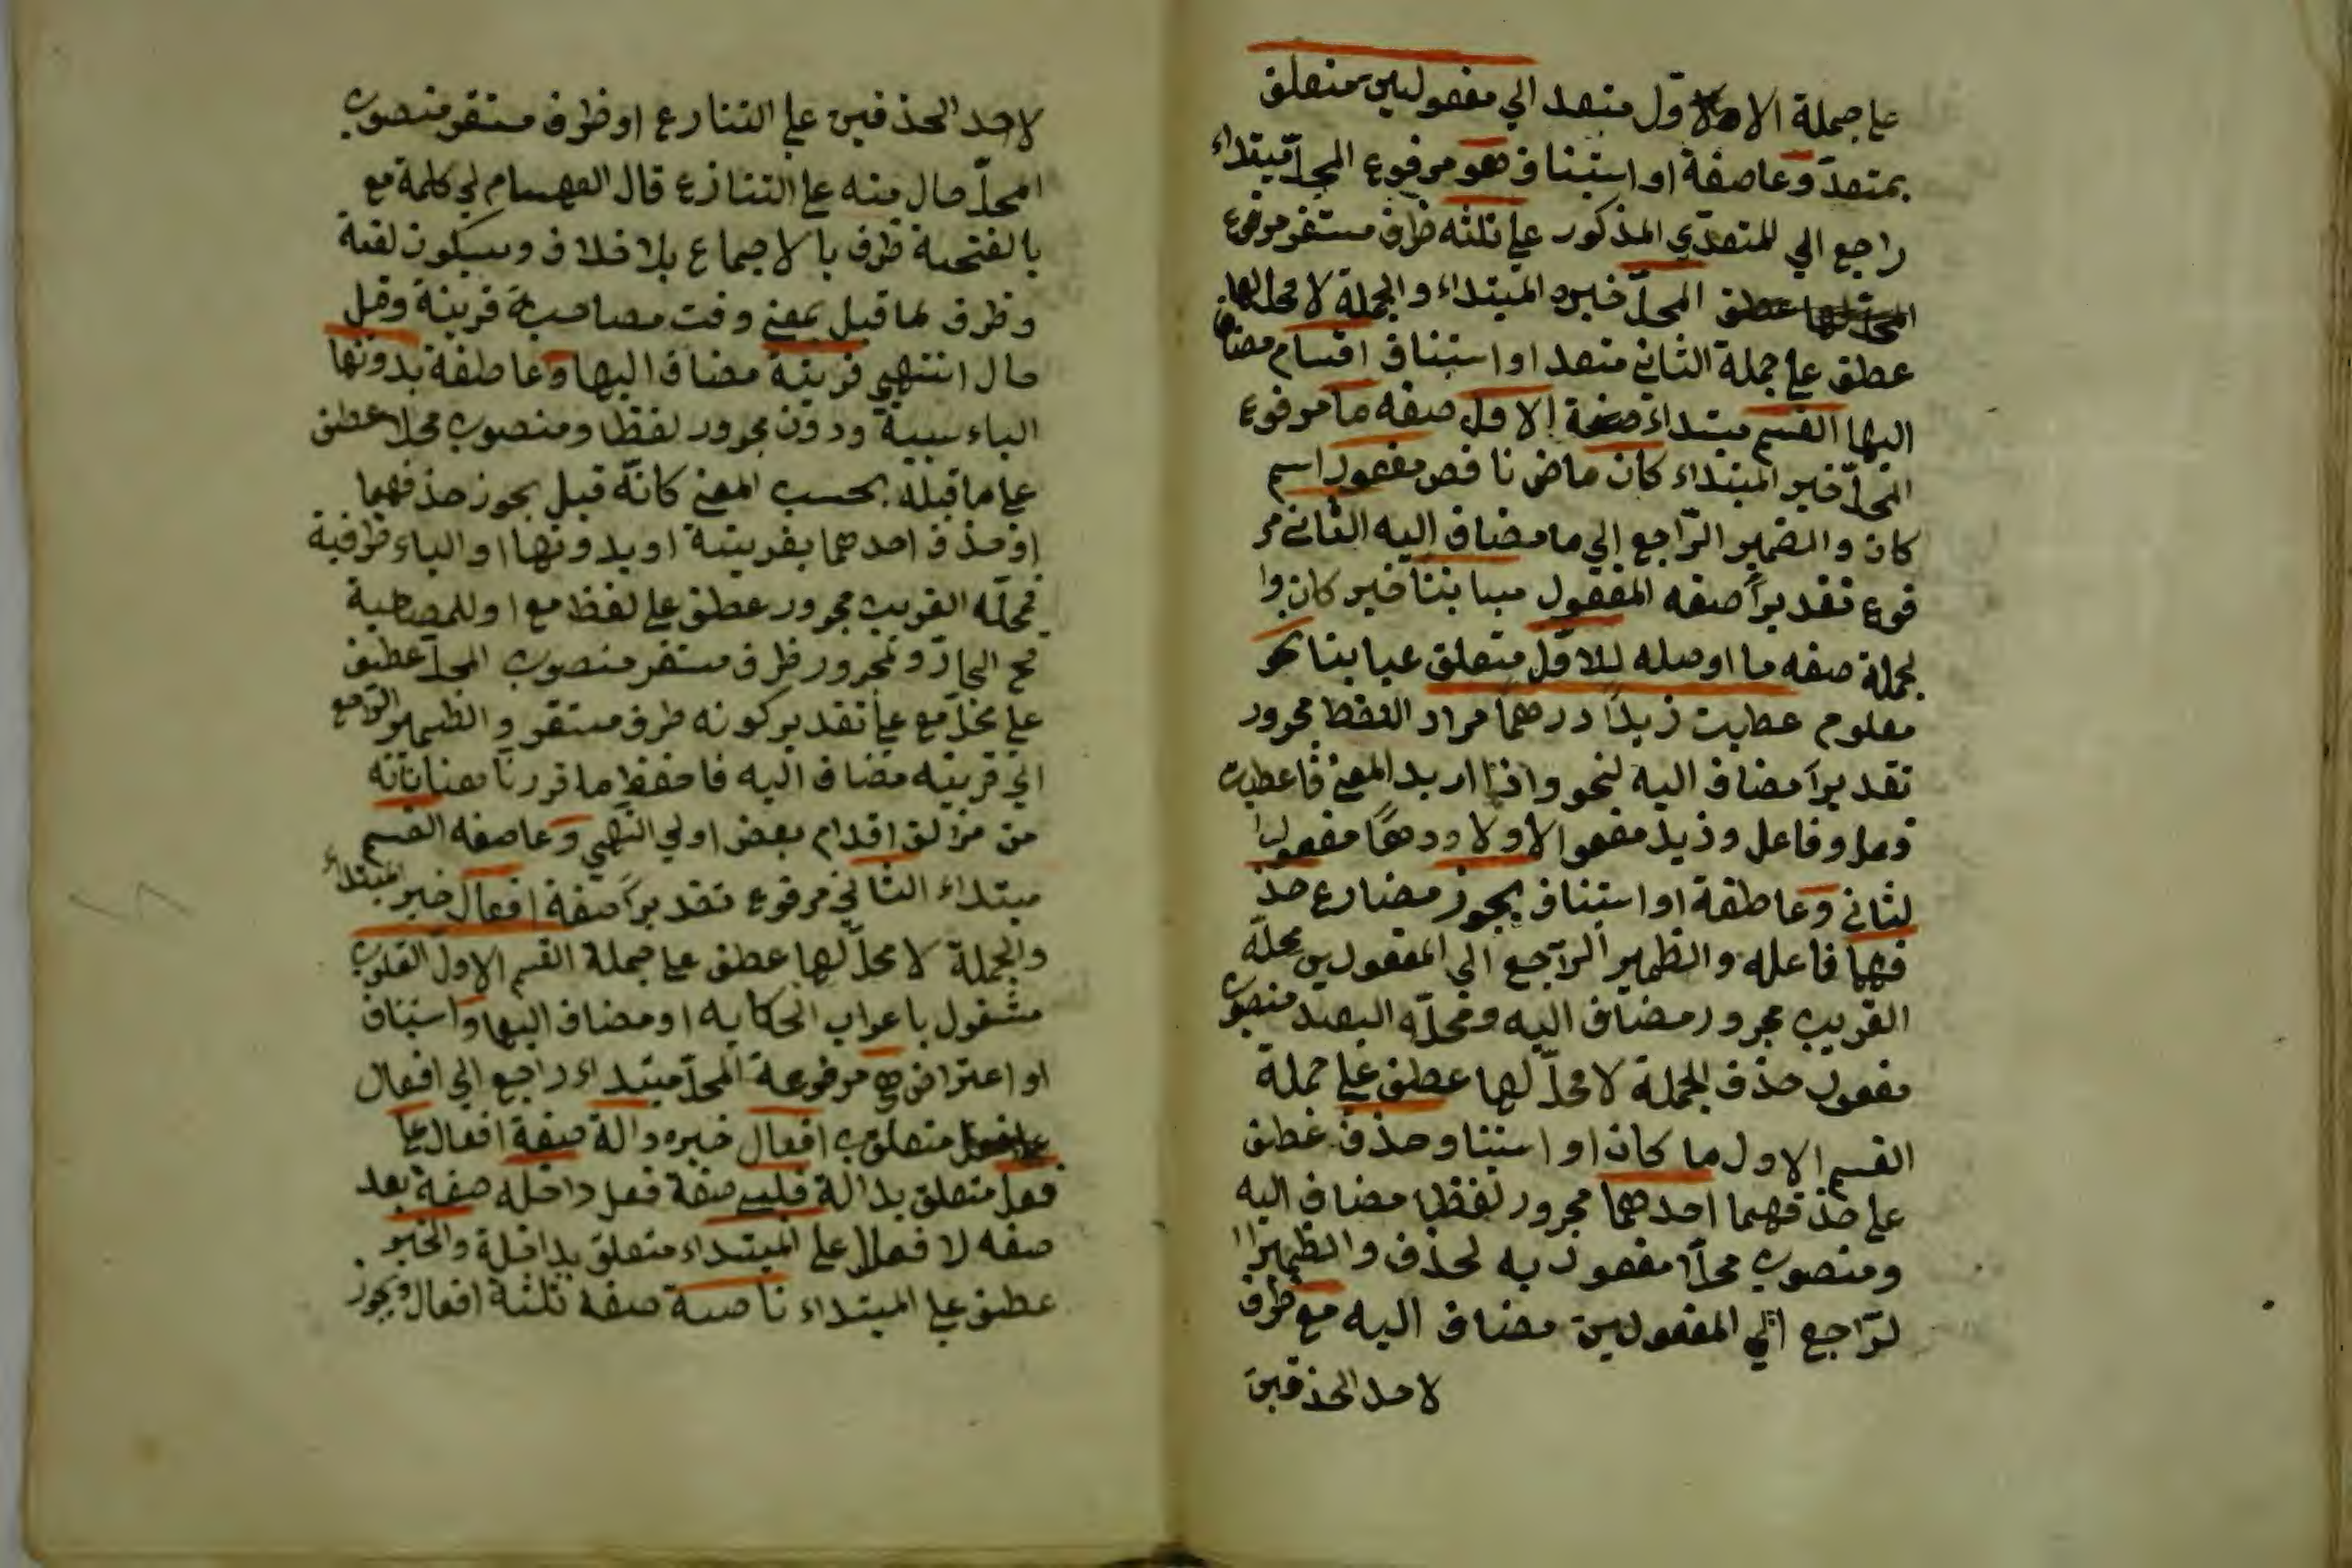 على جملة الاول متعد الى مفعولين متعلق
بمتعد وعاصفة او استيناف هو مرفوع المحل مبتداء
راجع الى للمتعدي المذكور على ثلثه ظرف مستقر مرفوع
المحل خبره المبتداء والجملة لا محل لها
عطف على جملة الثاني متعد او استيناف اقسام مضاف
اليها القسم مبتداء الاول صفه ما مرفوع
المحل خبر المبتداء كان ماض ناقص مفعول اسم
كان والضمير الراجع الى ما مضاف اليه الثاني مر
فوع تقديراً صفه المفعول مباينا خبر كان وا
لجملة صفه ما او صله للاول متعلق عباينا نحو
معلوم عطيت زيداً درهماً مراد اللفظ مجرور
تقديراً مضاف اليه لنحو واذا اريد المعنى فاعطيت
فعل وفاعل وزيد مفعوا الاولا ودرهماً مفعول ا
لثاني وعاطفة او استيناف يجوز مضارع حذ
فهما فاعله والظمير الراجع الى المفعولين محله
القريب مجرور مضاف اليه ومحله البعيد منصوب
مفعول حذف الجملة لا محل لها عطف على جملة
القسم الاول ما كان او استينا وحذف عطف
على حذفهما احدهما مجرور لفظا مضاف اليه
ومنصوب محلاً مفعول به لحذف والظمير ا
لراجع الى المفعولين مضاف اليه مع ظرف
لاحد الحذفين
لاحد الحذفين على التنارع او ظرف مستقر منصوب
المحل حال منه على التنازع قال العهسام لي كلمة مع
بالفتحة ظرف بالاجماع بلا خلاف وسيكون لغة
وظرف لما قبل بمعنى وقت مصاحبة قرينة وقيل
حال انتهى قرينة مضاف اليها وعاطفة بدونها
الباء سببية ودون مجرور لفظا ومنصوب محلا عطف
على ما قبله بحسب المعنى كانه قيل يجوز حذفهما
او حذف احدهما بقرينة او بدونها او الباء ظرفية
فمحله القريب مجرور عطف على لفظ مع او للمصاحبة
مح الجار ومجرور ظرف مستقر منصوب المحل عطف
على محل مع على تقدير كونه ظرف مستقر والظمير الراجع
الى قرينه مضاف اليه فاحفظ ما قررنا
من مزلق اقدام بعض اولي النهى وعاصفه القسم
مبتداء الثاني مرفوع تقديراً صفة افعال خبر المبتداء
والجملة لا محل لها عطف على جملة القسم الاول القلوب
مشغول باعراب الحكايه او مضاف اليها واستيناف
او اعتراض هي مرفوعة المحل مبتداء راجع الى افعال
متعلق افعال خبره دالة صفة افعال على
فعل متعلق بدالة قلبي صفة فعل داخله صفة بعد
صفه لافعال على المبتداء متعلق بداخلة والخبر
عطف على المبتداء ناصبة صفة ثلثة افعال ويجوز